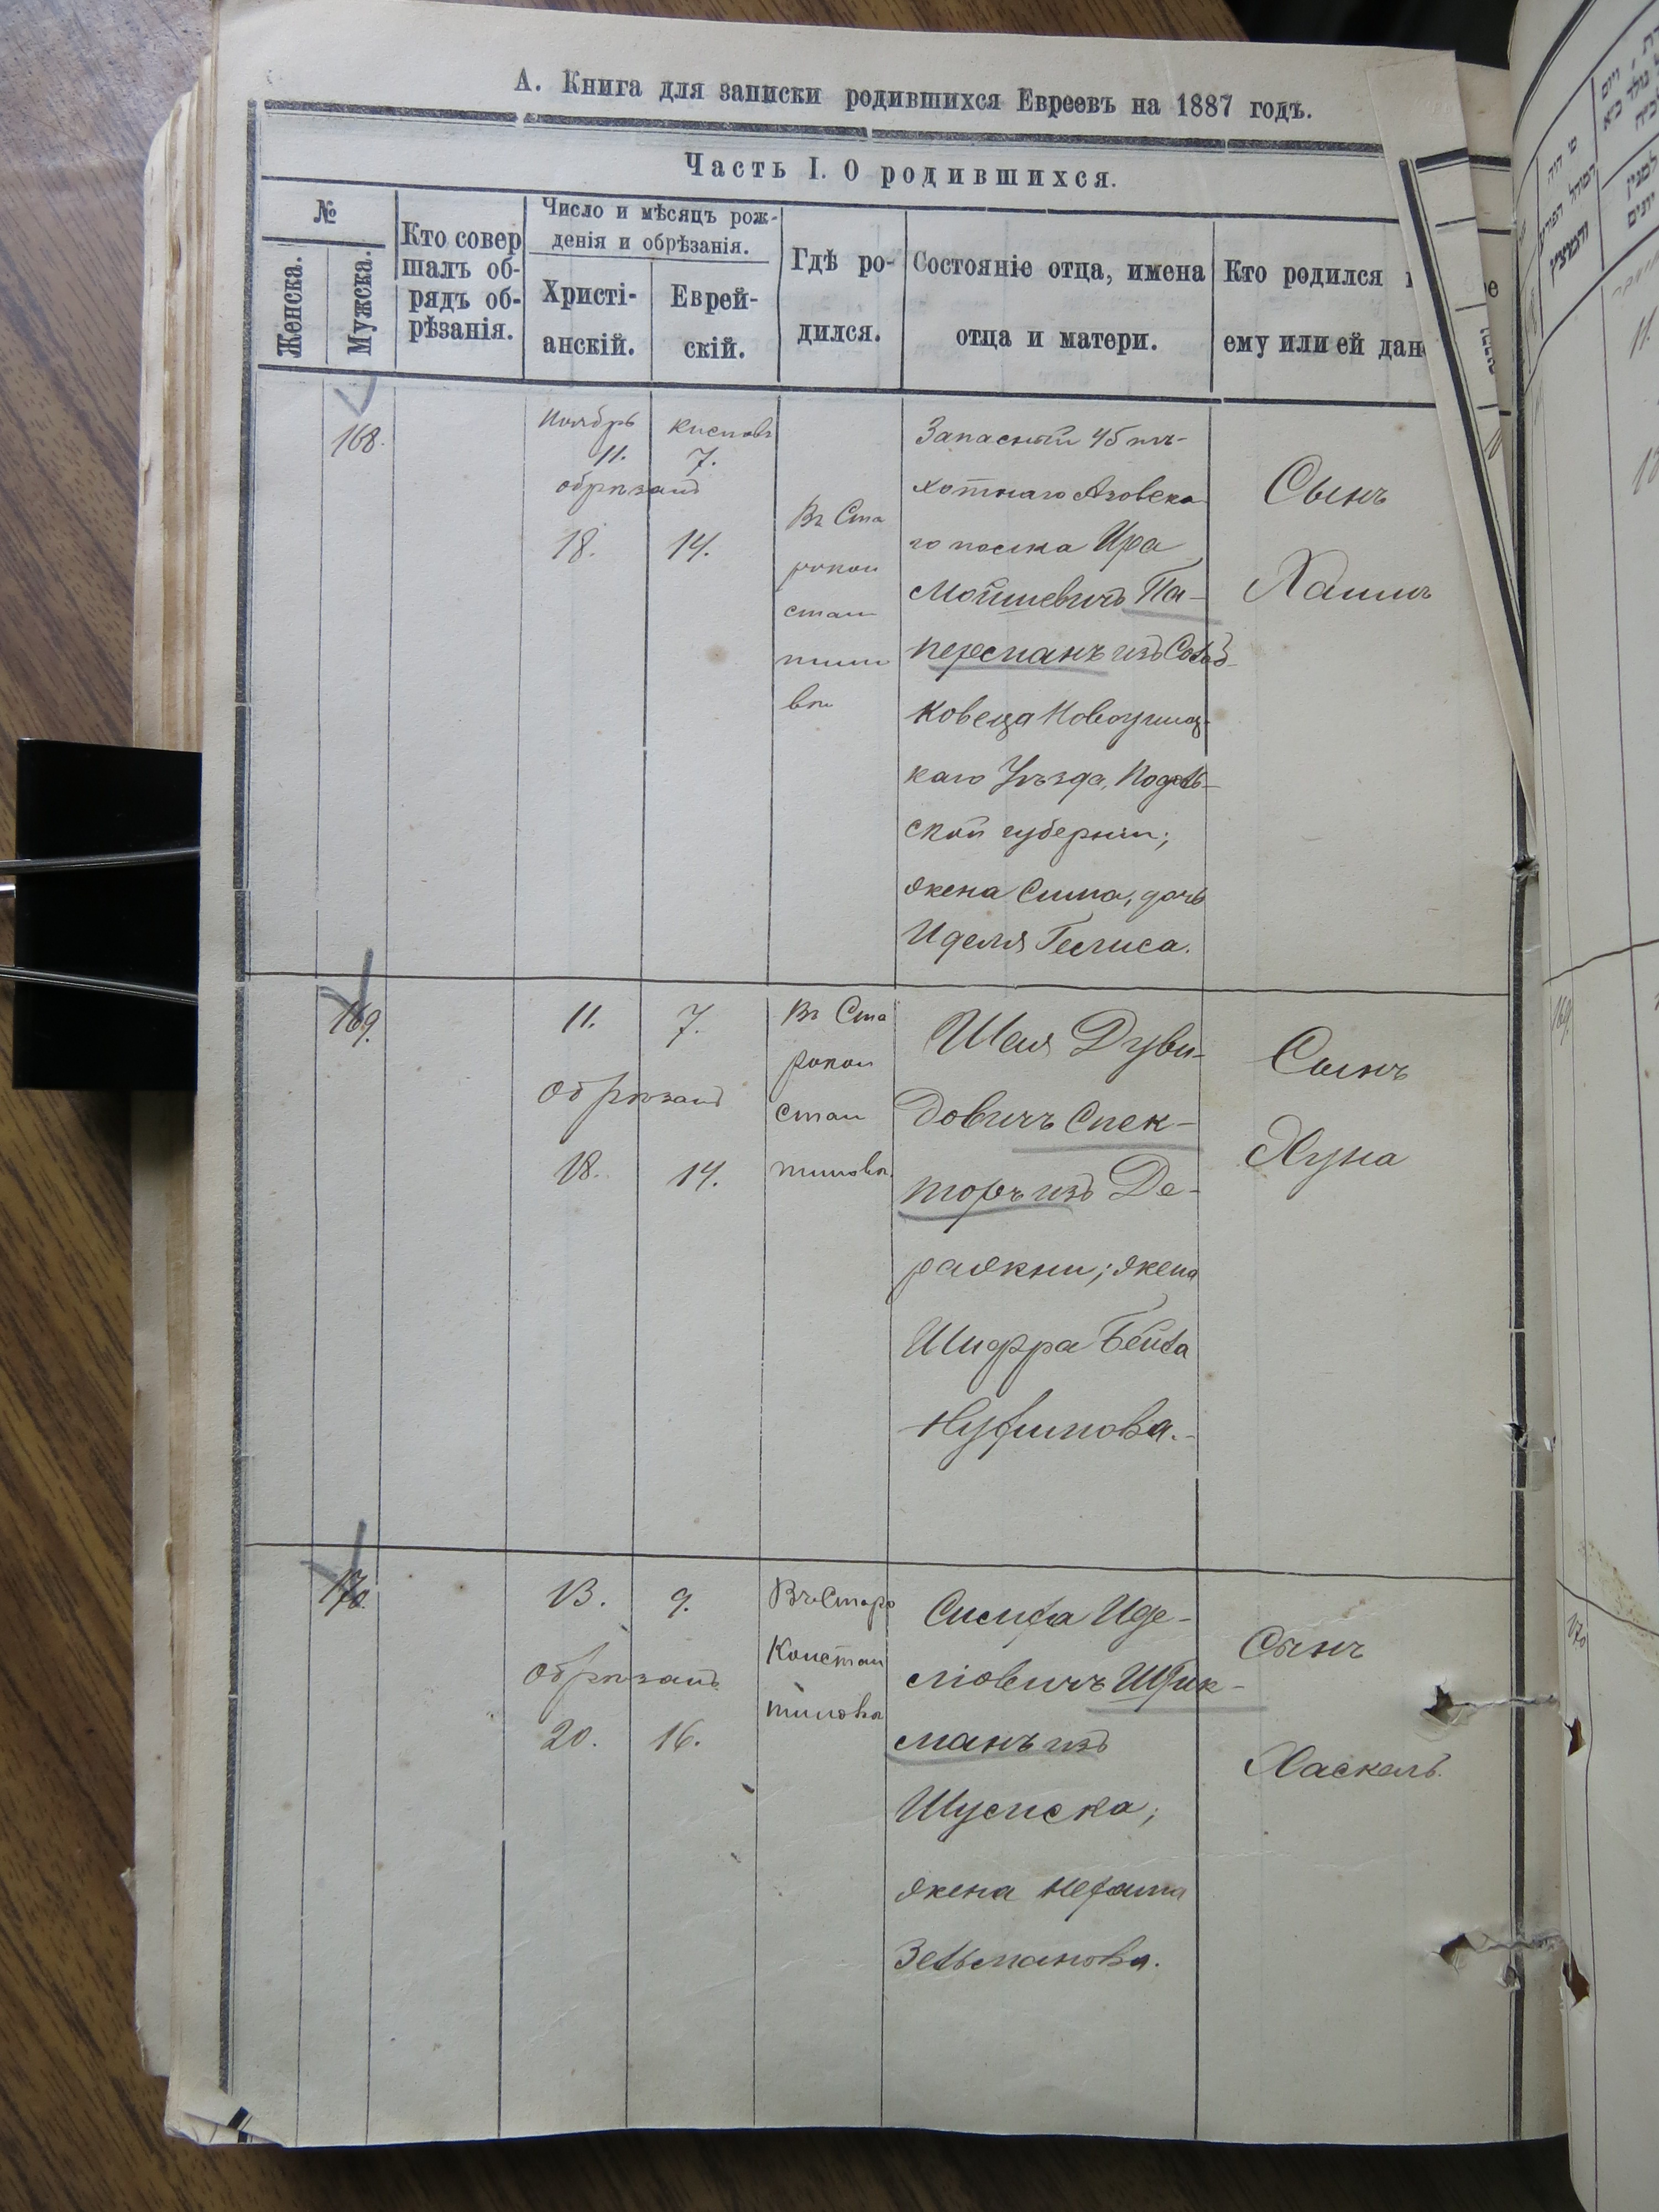 А. Книга для записки родившихся Евреевъ на 1887 годъ.
Часть I. О родившихся.
№
Женска.
Мужска.
Кто совер
шалъ об-
рядъ об-
рѣзанія.
Число и мѣсяцъ рож-
денія и обрѣзанія.
Христі-
анскій.
Еврей-
скій.
Гдѣ ро-
дился.
Состояніе отца, имена
отца и матери.
Кто родился
ему или ей дан
168.
Ноябрь
11.
Кислевъ
7.
обрѣзанъ
18.
14.
Въ Ста
рокон
стан
тино
вѣ
Запасный 45 пѣ-
хотнаго Азовска
го полка Ира
Мойшевичъ Па-
перманъ изъ Солод-
ковеца Новоушиц-
каго Уѣзда, Подоль-
ской губерніи;
жена Сима, дочь
Иделя
Сынъ
Хаимъ
169.
11.
7.
обрѣзанъ
18.
14.
Въ Ста
рокон
стан
тиновѣ
Шая Дуви-
довичъ Спек-
торъ изъ Де-
ражни; жена
Шифра Бейла
Нухимова.-
Сынъ
Хуна
170.
13.
9.
обрѣзанъ
20.
16.
Въ Старо
Констан
тиновѣ
Симха Иде-
ліовичъ
манъ изъ
Шумска;
жена Нехама
Зельманова.
Сынъ
Хаскель.
169.
170